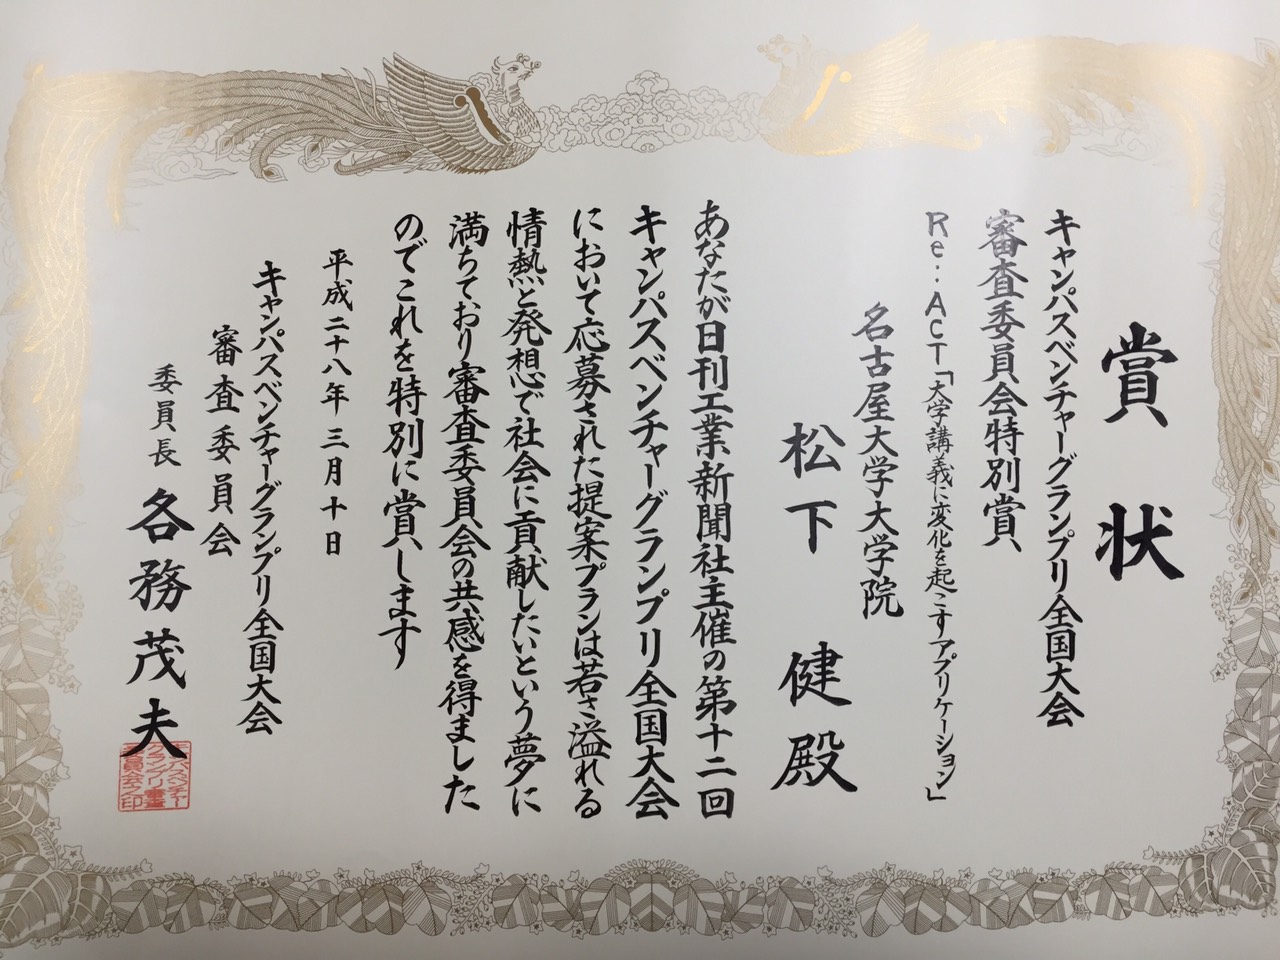 賞状
キャンパスベンチャーグランプリ全国大会
審査委員会特別賞
Re:ACT「大学講義に変化を起こすアプリケーション」
名古屋大学大学院
松下 健殿
あなたが日刊工業新聞社主催の第十二回
キャンパスベンチャーグランプリ全国大会
において応募された提案プランは若さ溢れる
情熱と発想で社会に貢献したいという夢に
満ちており審査委員会の共感を得ました
のでこれを特別に賞します
平成二十八年三月十日
キャンパスベンチャーグランプリ全国大会
審査委員会
委員長 各務茂夫